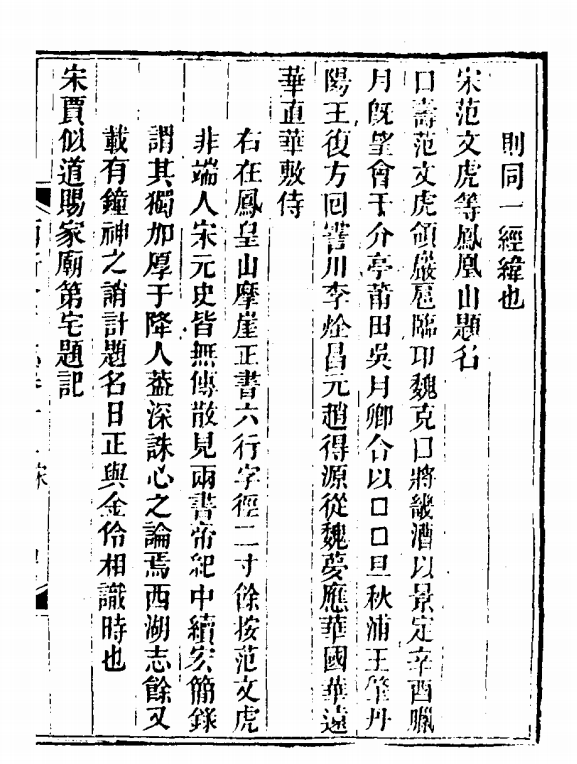 則同一經緯也
宋范文虎等鳳凰山題名
口壽范文虎領嚴扈臨卭魏克口將畿漕以景定辛酉臘
月旣望會于介亭莆田吳月卿合以口口旦秋浦王肇丹
陽王復方回霅川李烇昌元趙得源從魏夢應華國華遠
華直華敷侍
右在鳳皇山摩崖正書六行字徑二寸餘按范文虎
非端人宋元史皆無傳散見兩書帝紀中續宏簡錄
謂其獨加厚于降人葢深誅心之論焉西湖志餘又
載有鐘神之誚計題名日正與金伶相識時也
宋賈似道賜家廟第宅題記